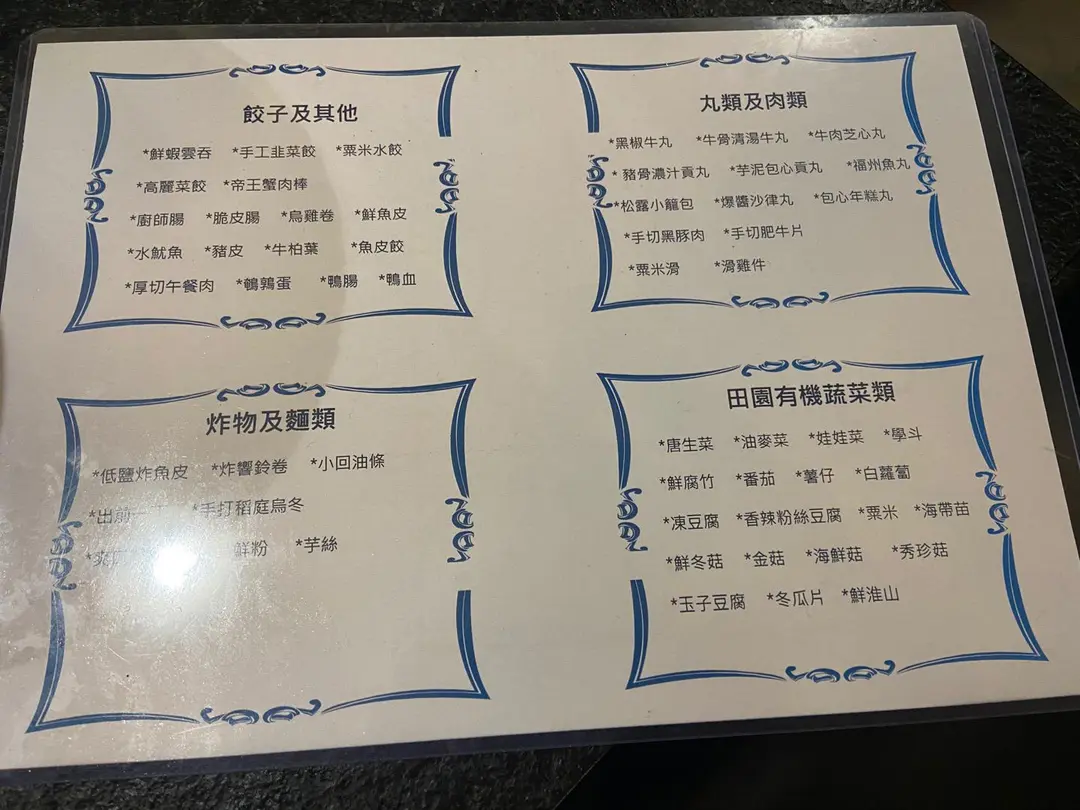 餃子及其他
*鮮蝦雲吞 *手工韭菜餃 *粟米水餃
*高麗菜餃 *帝王蟹肉棒
*廚師腸 *脆皮腸 *烏雞卷 *鮮魚皮
*水魷魚 *豬皮 *牛柏葉 *魚皮餃
*厚切午餐肉 *鵪鶉蛋 *鴨腸 *鴨血
丸類及肉類
*黑椒牛丸 *牛骨清湯牛丸 *牛肉芝心丸
*豬骨濃汁貢丸 *芋泥包心貢丸 *福州魚丸
*松露小籠包 *爆醬沙律丸 *包心年糕丸
*手切黑豚肉 *手切肥牛片
*粟米滑 *滑雞件
炸物及麵類
*低鹽炸魚皮 *炸響鈴卷 *小回油條
*出前一 *手打稻庭烏冬
鮮粉 *芋絲
田園有機蔬菜類
*唐生菜 *油麥菜 *娃娃菜 *學斗
*鮮腐竹 *番茄 *薯仔 *白蘿蔔
*凍豆腐 *香辣粉絲豆腐 *粟米 *海帶苗
*鮮冬菇 *金菇 *海鮮菇 *秀珍菇
*玉子豆腐 *冬瓜片 *鮮淮山